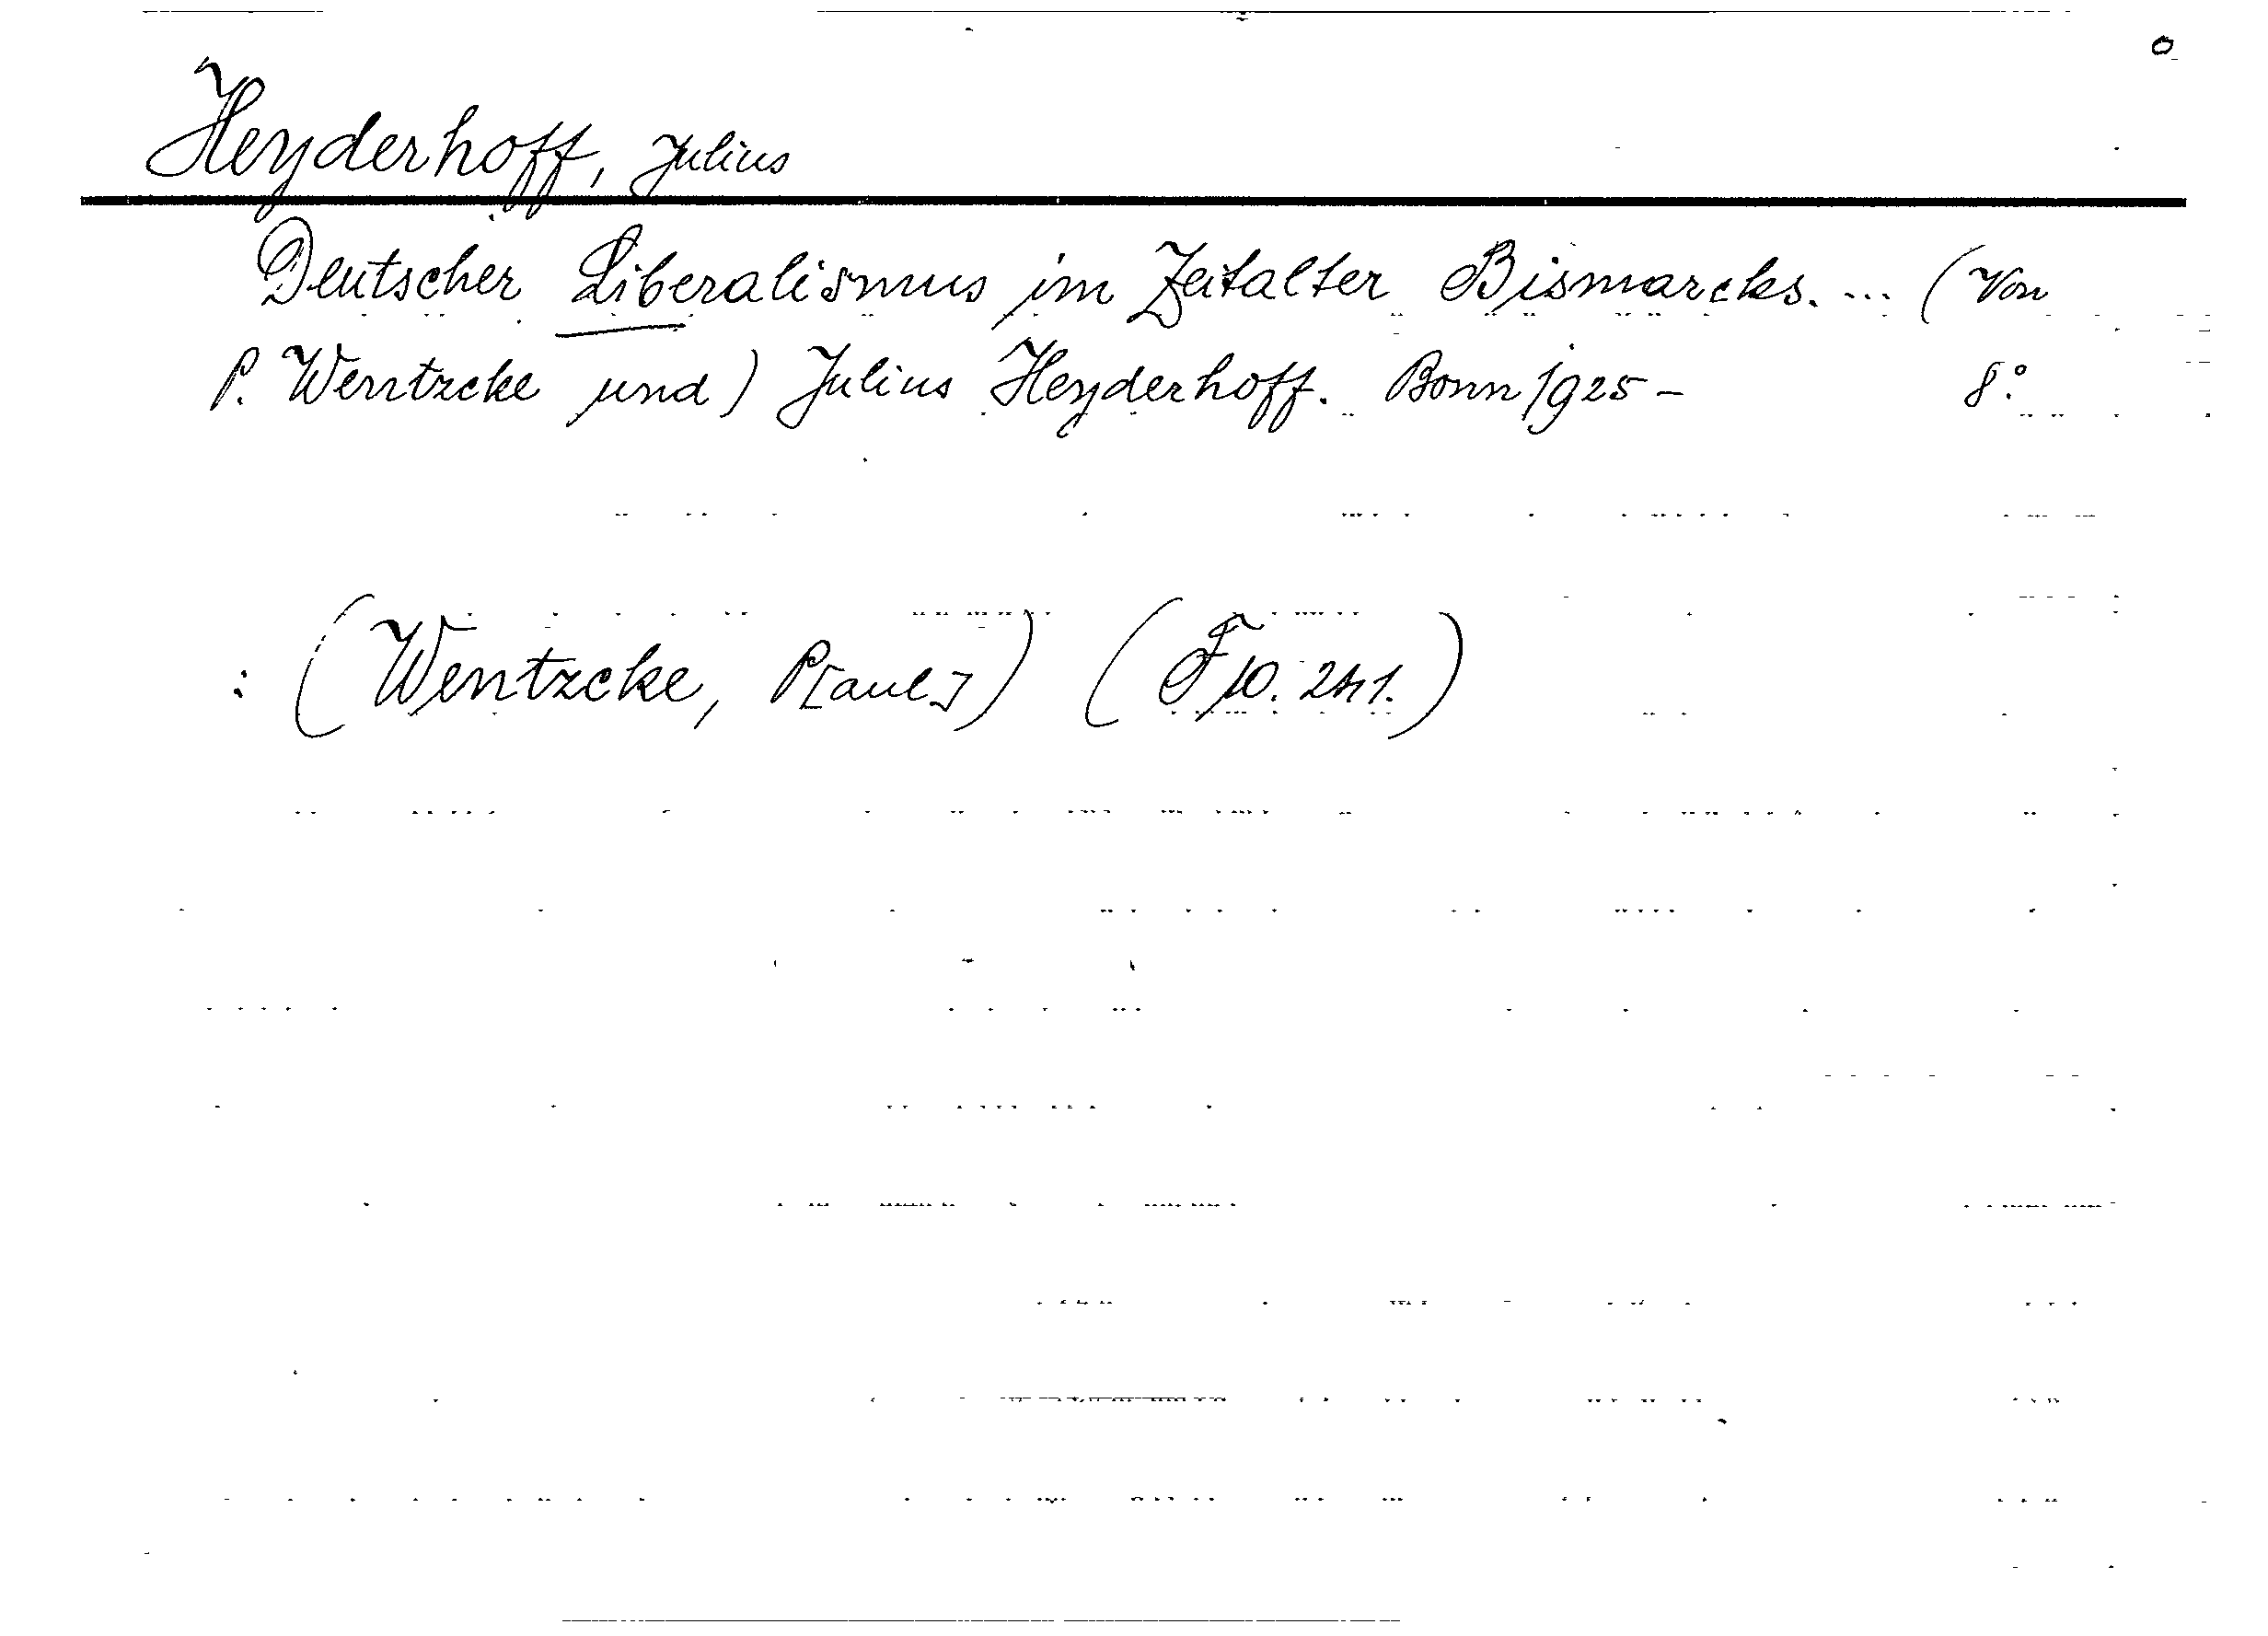 Heyderhoff, Julius
Deutscher Liberalismus im Zeitalter Bismarcks. ... (Von
P. Wentzcke und) Julius Heyderhoff. Bonn 1925 - 8°.
: (Wentzcke, P[aul]) (F 10. 241.)